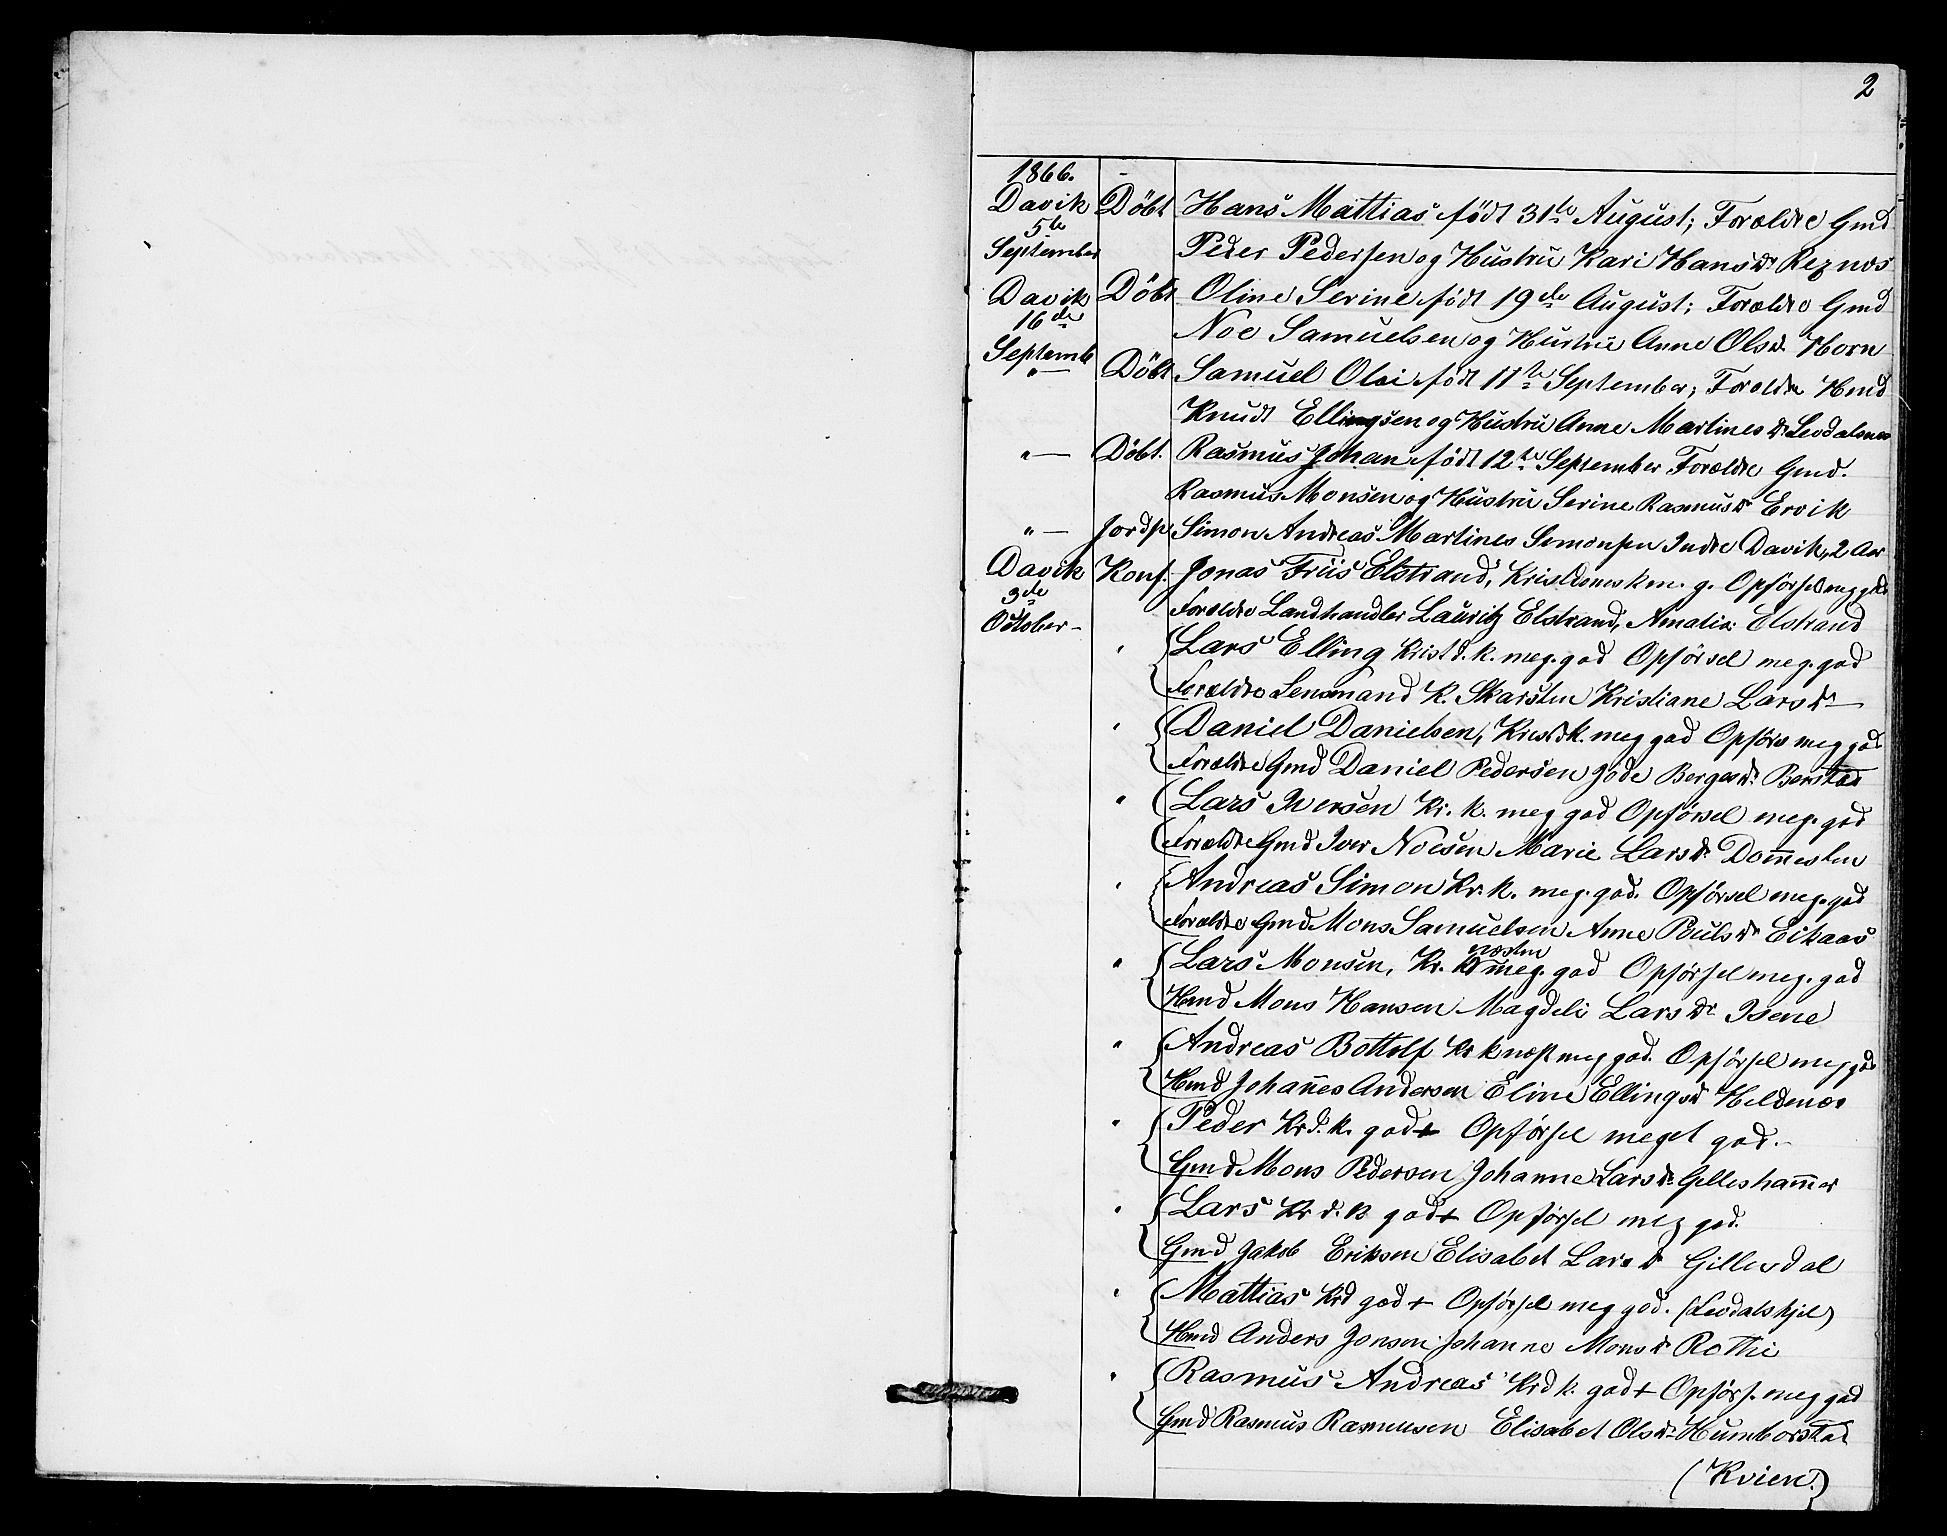 2
1866.
Davik Döbt Hans Mattias født 31te August; Forældre Gmd
5te September Peder Pedersen og Hustru Kari Hansdr
Davik Döbt Oline Serine født 19de August; Forældre Gmd
16de Septemb Noe Samuelsen og Hustru Anne Olsdr. Horn
" — Döbt Samuel Olai født 11te September; Forældre Hmd
Knudt Ellingsen og Hustru Anne Martinesdr Levdalsnes
" — Döbt. Rasmus Johan født 12te September Forældre Gmd.
Rasmus Monsen og Hustru Serine Rasmusdr Ervik
" — Jordp Simon Andreas Martines Simonsen Indre Davik, 2 Aar
Davik Konf. Jonas Friis Elstrand, Kristdomsk m. g. Opførsel meg gd
3de October - Forældre Landhandler Lauritz Elstrand, Amalia Elstrand
" Lars Elling Kristd. k. meg. god Opførsel meg. god
Forældre Lensmand K. Skarsten Kristiane Larsdr —
" Daniel Danielsen, Kristdk. meg god Opførs meg god
Forældre Gmd Daniel Pedersen Gøde Bergesdr. Berstad
" Lars Iversen Kr. k. meg god Opførsel meg. god
Forældre Gmd Iver Noesen Marie Larsdr. Dom̅esten
" Andreas Simon Kr. k. meg. god. Opførsel meg. god
Forældre Gmd Mons Samuelsen Anne Poulsdr Eikaas
" Lars Monsen, Kr. k næsten meg. god Opførsel meg. god
Hmd Mons Hansen Magdeli Larsdr Isene
" Andreas Bottolf Kr k næst meg god. Opførsel meg gd
Hmd Johan̅es Andersen Eline Ellingsdr Heldenæs
" Peder Krd. k. god + Opførsel meget god. -
Gmd Mons Pedersen Johanne Larsdr. Gillesham̅er
" Lars Kr d. k god + Opførsel meg god.
Gmd Jakob Eriksen Elisabet Larsdr Gillesdal
" Mattias Krd god + Opførsel meg god. (Levdalskjel)
Hmd Anders Jonsen Johanne Monsdr Rotti
" Rasmus Andreas Krd k. god + Opførs. meg god
Gmd Rasmus Rasmusen Elisabet Olsdr. Humborstad
(Kvien.)